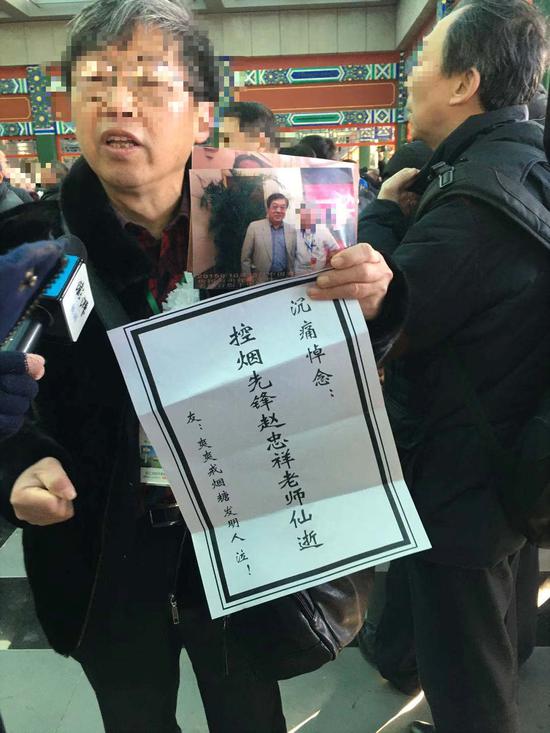 沉痛悼念：
控烟先锋赵忠祥老师仙逝
友：爽爽戒烟糖发明人 泣！